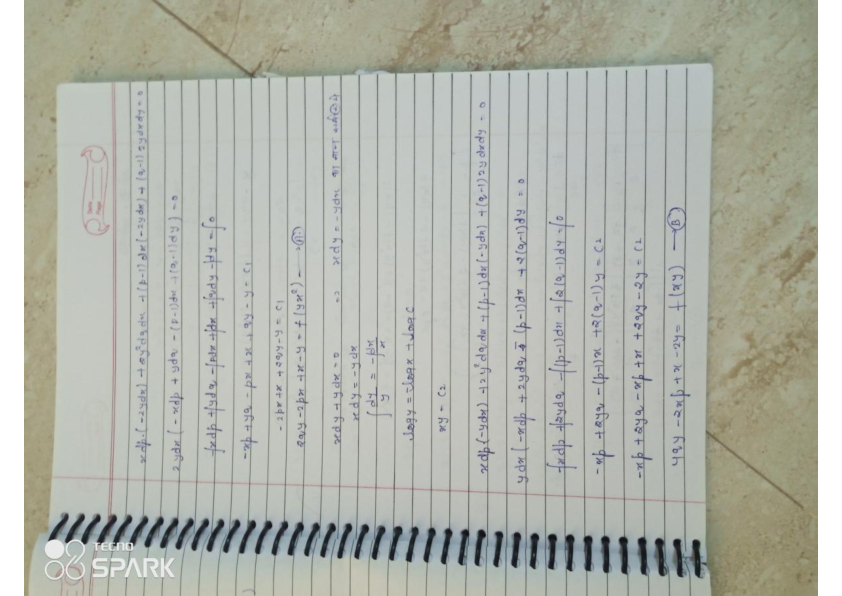 xdp·(-2ydx) + 2y²dqdx + (p-1)dx(-2ydx) + (q-1)2ydxdy = 0
2ydx(-xdp + ydq - (p-1)dx + (q-1)dy) = 0
-∫xdp + ∫ydq - ∫pdx + ∫dx + ∫qdy - ∫dy = ∫0
-xp + yq - px + x + qy - y = c₁
-2px + x + 2qy - y = c₁
2qy - 2px + x - y = f(yx²) — (A)
xdy + ydx = 0 ⇒ xdy = -ydx का मान
xdy = -ydx
∫dy/y = -∫dx/x
logy = -logx + logc
xy = c₂
xdp(-ydx) + 2y²dqdx + (p-1)dx(-ydx) + (q-1)2ydxdy = 0
ydx(-xdp + 2ydq - (p-1)dx + 2(q-1)dy = 0
-∫xdp + ∫2ydq - ∫(p-1)dx + ∫2(q-1)dy = ∫0
-xp + 2yq - (p-1)x + 2(q-1)y = c₂
-xp + 2yq - xp + x + 2qy - 2y = c₂
4qy - 2xp + x - 2y = f(xy) — (B)
TECNO
SPARK